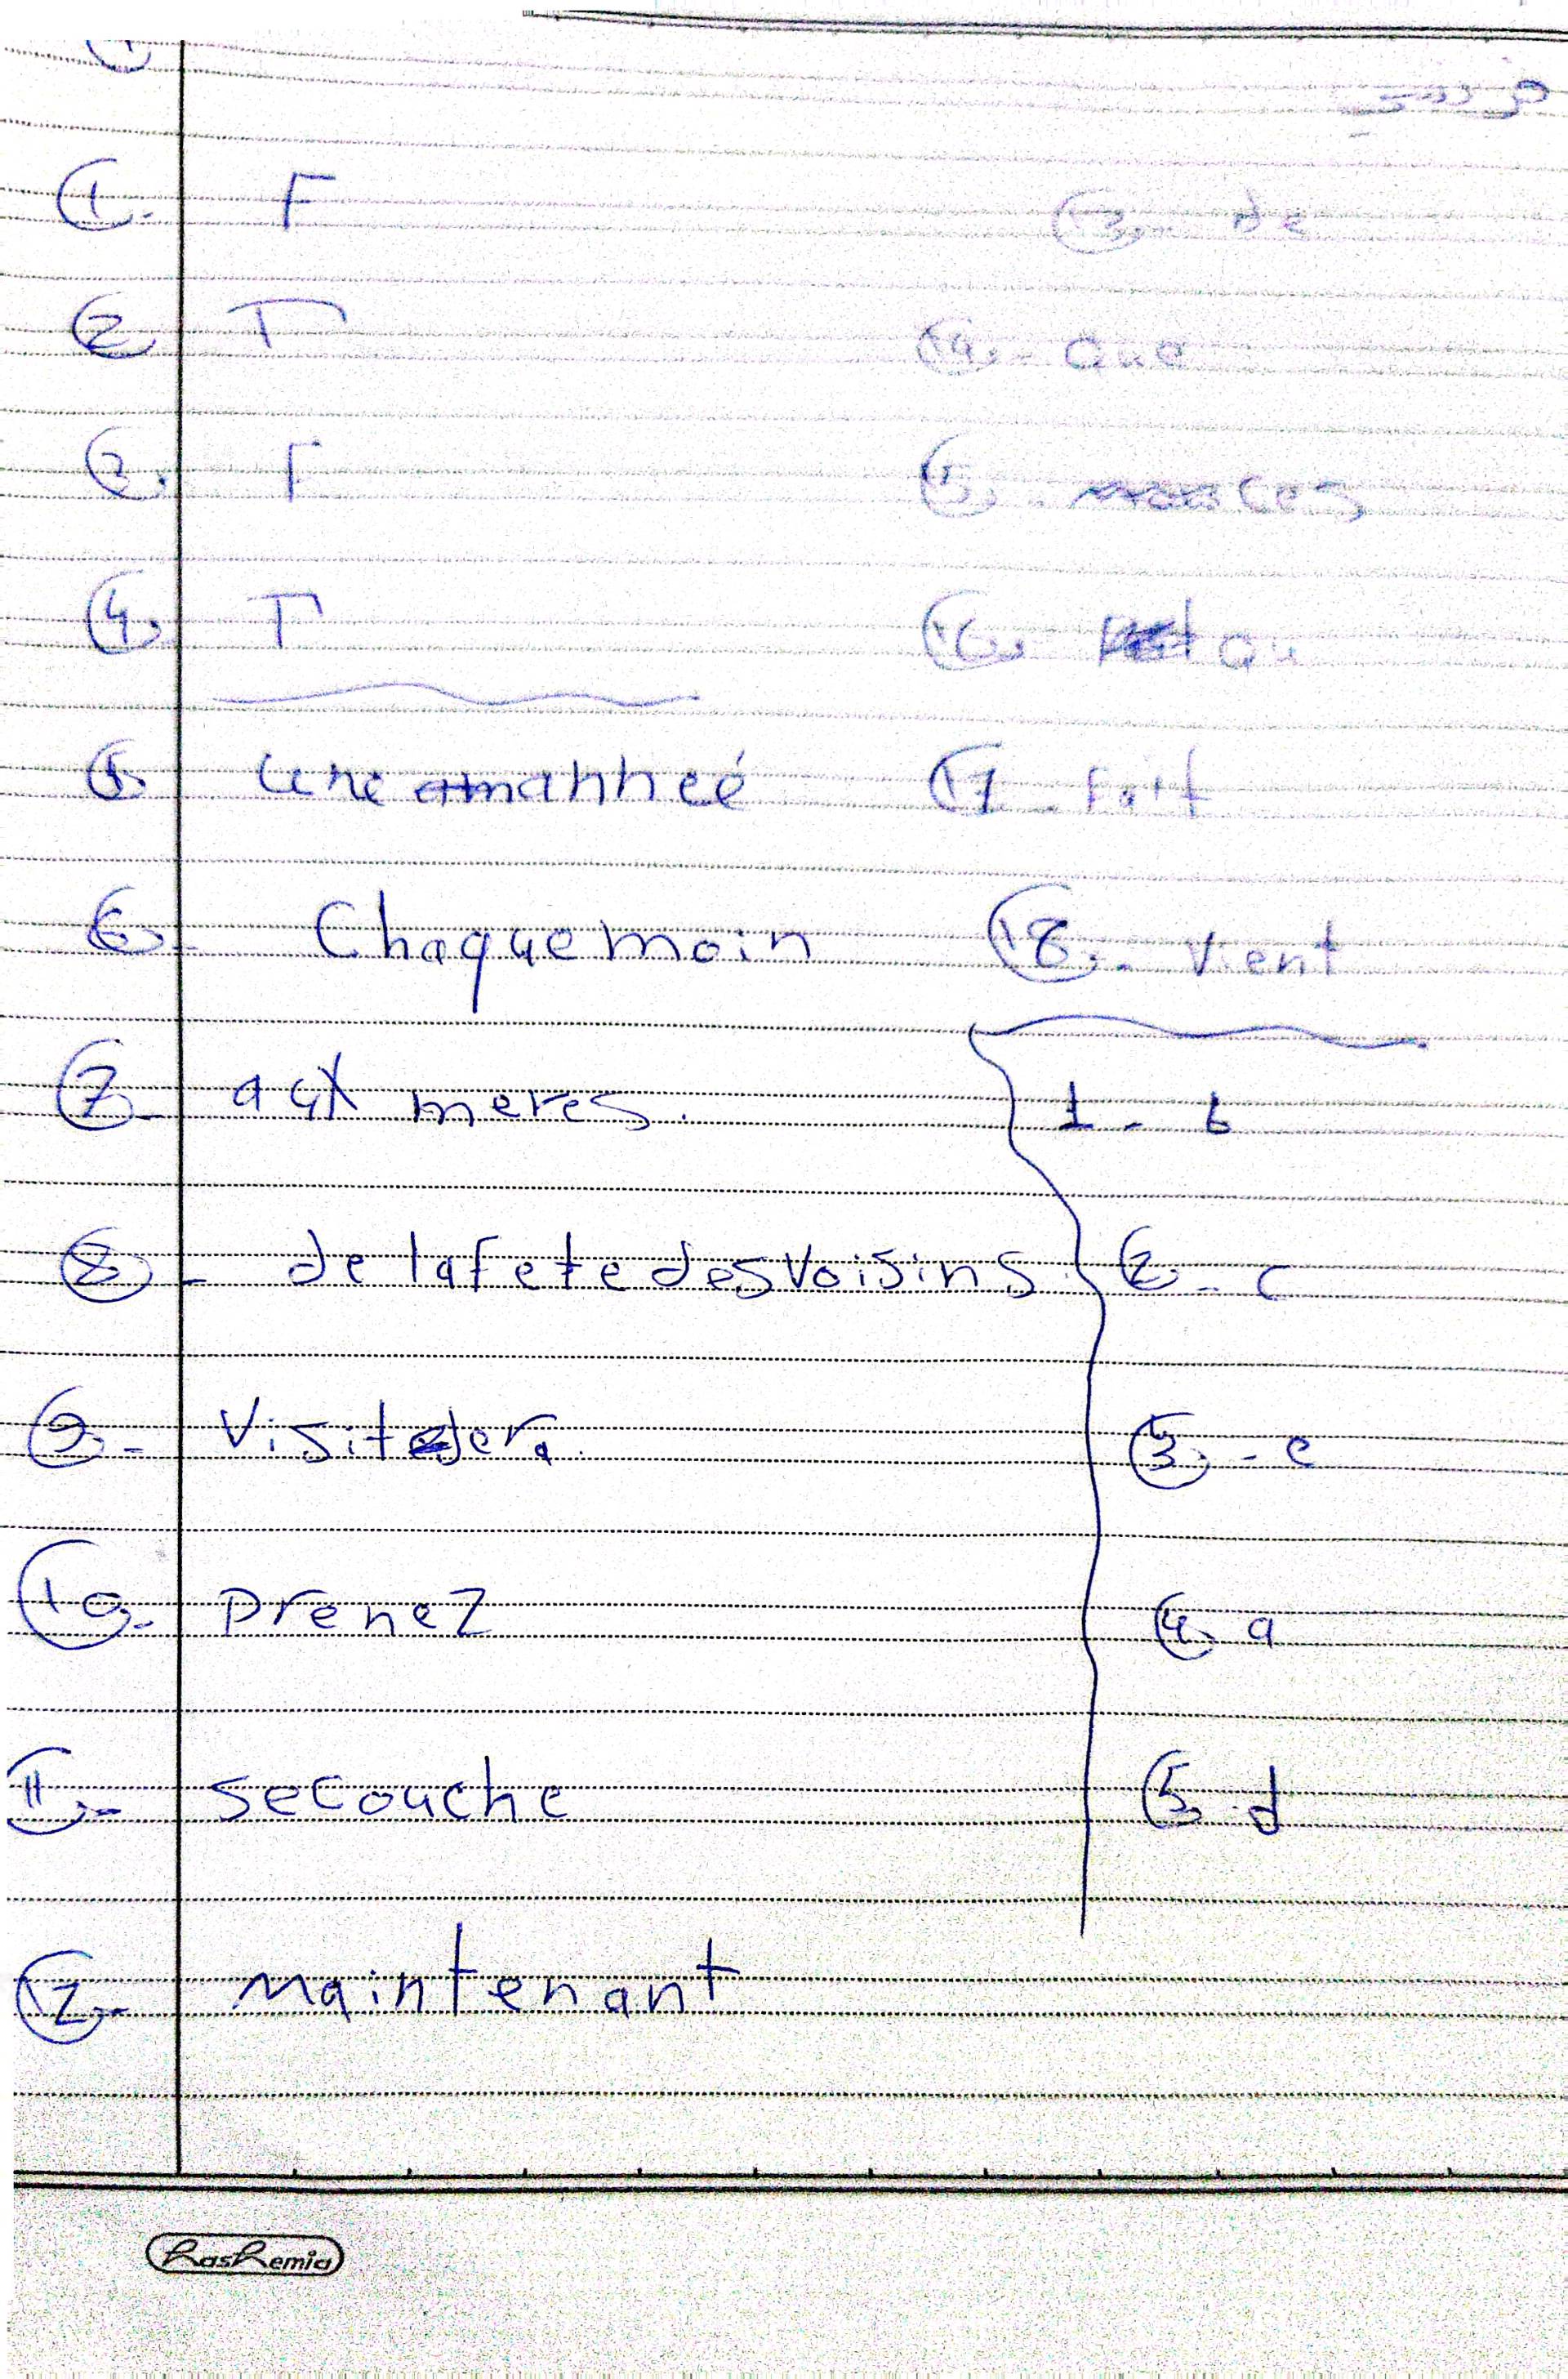 1. F
2. T
3. F
4. T
5. une année
6. Chaque moin
7- aux meres.
8- de la fete des voisins.
9- Visitera
10- prenez
11- se couche
12- maintenant
13- de
14- que
15- ces
16- ou
17- Fait
18- Vient
1- b
2- c
3- e
4. a
5. d
HasHemia